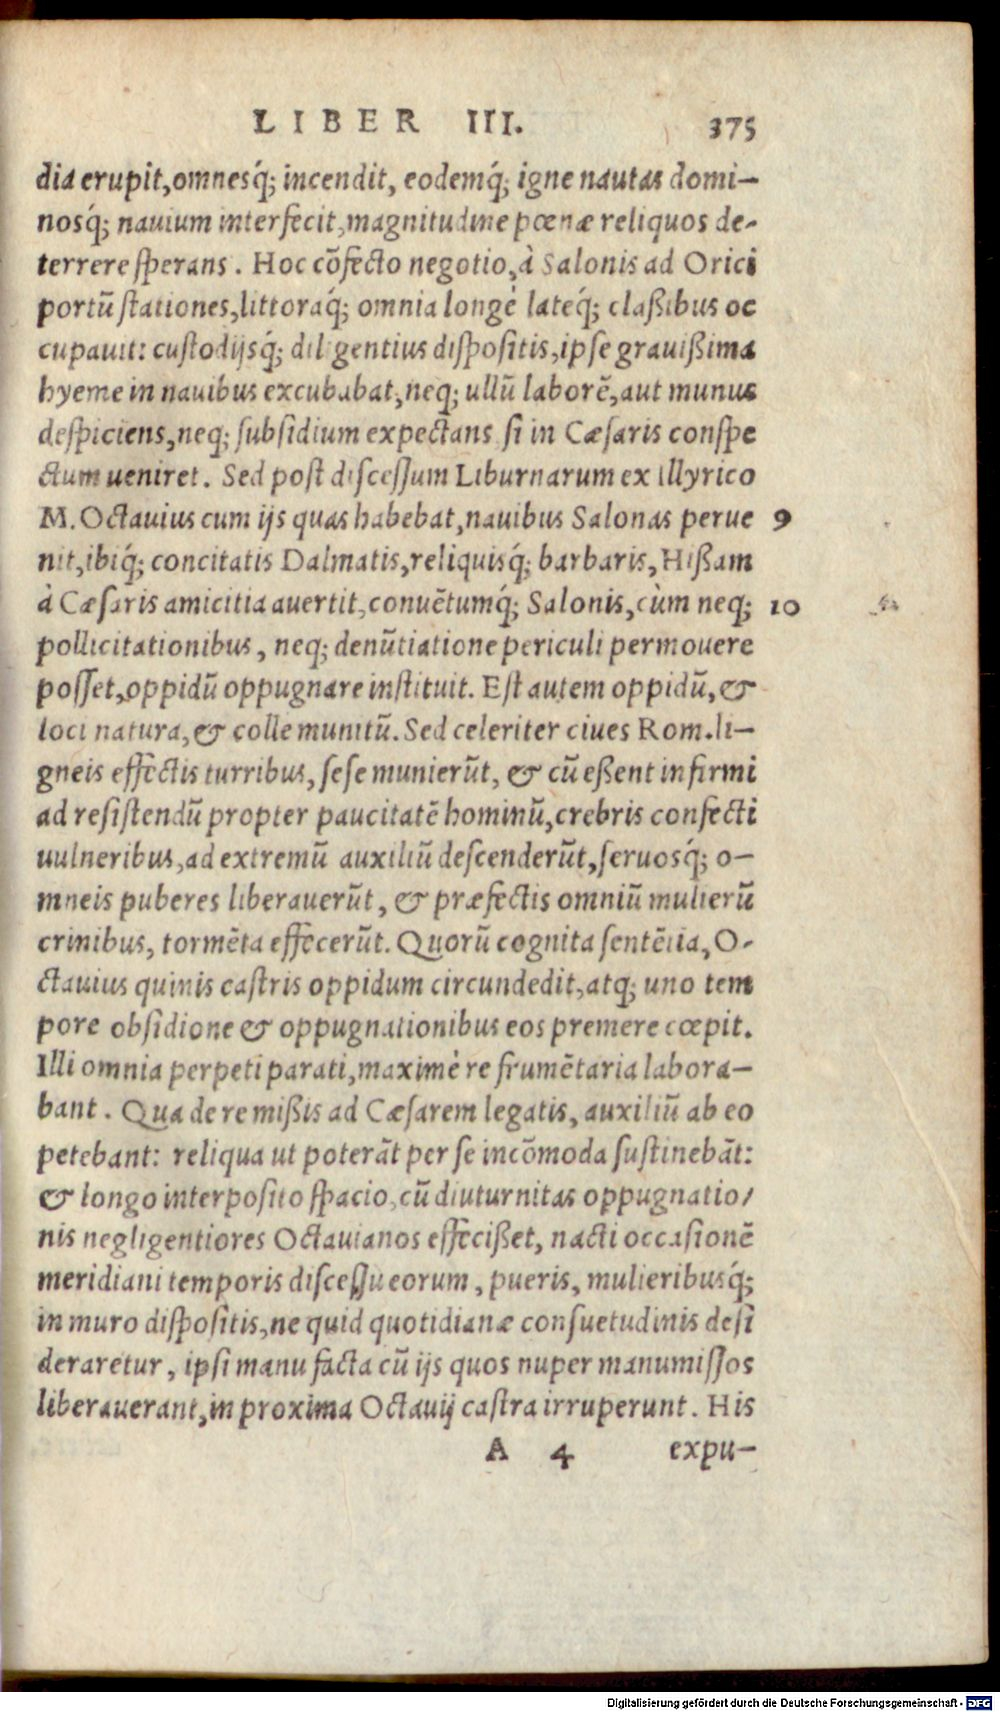 LIBER III. 375
dia erupit, omnesq́; incendit, eodemq́; igne nautas domi–
nosq́; nauium interfecit, magnitudine pœnæ reliquos de-
terrere ſperans. Hoc cōfecto negotio, à Salonis ad Orici
portū ſtationes, littoraq́; omnia longè lateq́; claßibus oc
cupauit: cuſtodijsq́; diligentius diſpoſitis, ipſe grauißima
hyeme in nauibus excubabat, neq; ullū laborē, aut munus
deſpiciens, neq; ſubſidium expectans ſi in Cæſaris conſpe
ctum ueniret. Sed poſt diſceſſum Liburnarum ex Illyrico
M. Octauius cum ijs quas habebat, nauibus Salonas perue 9
nit, ibiq́; concitatis Dalmatis, reliquisq́; barbaris, Hißam
à Cæſaris amicitia auertit, conuētumq́; Salonis, cùm neq; 10
pollicitationibus, neq; denūtiatione periculi permouere
poſſet, oppidū oppugnare inſtituit. Eſt autem oppidū, &
loci natura, & colle munitū. Sed celeriter ciues Rom. li–
gneis effectis turribus, ſeſe munierūt, & cū eßent infirmi
ad reſiſtendū propter paucitatē hominū, crebris confecti
uulneribus, ad extremū auxiliū deſcenderūt, ſeruosq́; o–
mneis puberes liberauerūt, & præfectis omniū mulierū
crinibus, tormēta effecerūt. Quorū cognita ſentētia, O-
ctauius quinis caſtris oppidum circundedit, atq; uno tem
pore obſidione & oppugnationibus eos premere cœpit.
Illi omnia perpeti parati, maximè re frumētaria labora–
bant. Qua de re mißis ad Cæſarem legatis, auxiliū ab eo
petebant: reliqua ut poterāt per ſe incōmoda ſuſtinebāt:
& longo interpoſito ſpacio, cū diuturnitas oppugnatio/
nis negligentiores Octauianos effecißet, nacti occaſionē
meridiani temporis diſceſſu eorum, pueris, mulieribusq́;
in muro diſpoſitis, ne quid quotidianæ conſuetudinis deſi
deraretur, ipſi manu facta cū ijs quos nuper manumiſſos
liberauerant, in proxima Octauij caſtra irruperunt. His
A 4 expu–
Digitalisierung gefördert durch die Deutsche Forschungsgemeinschaft - DFG